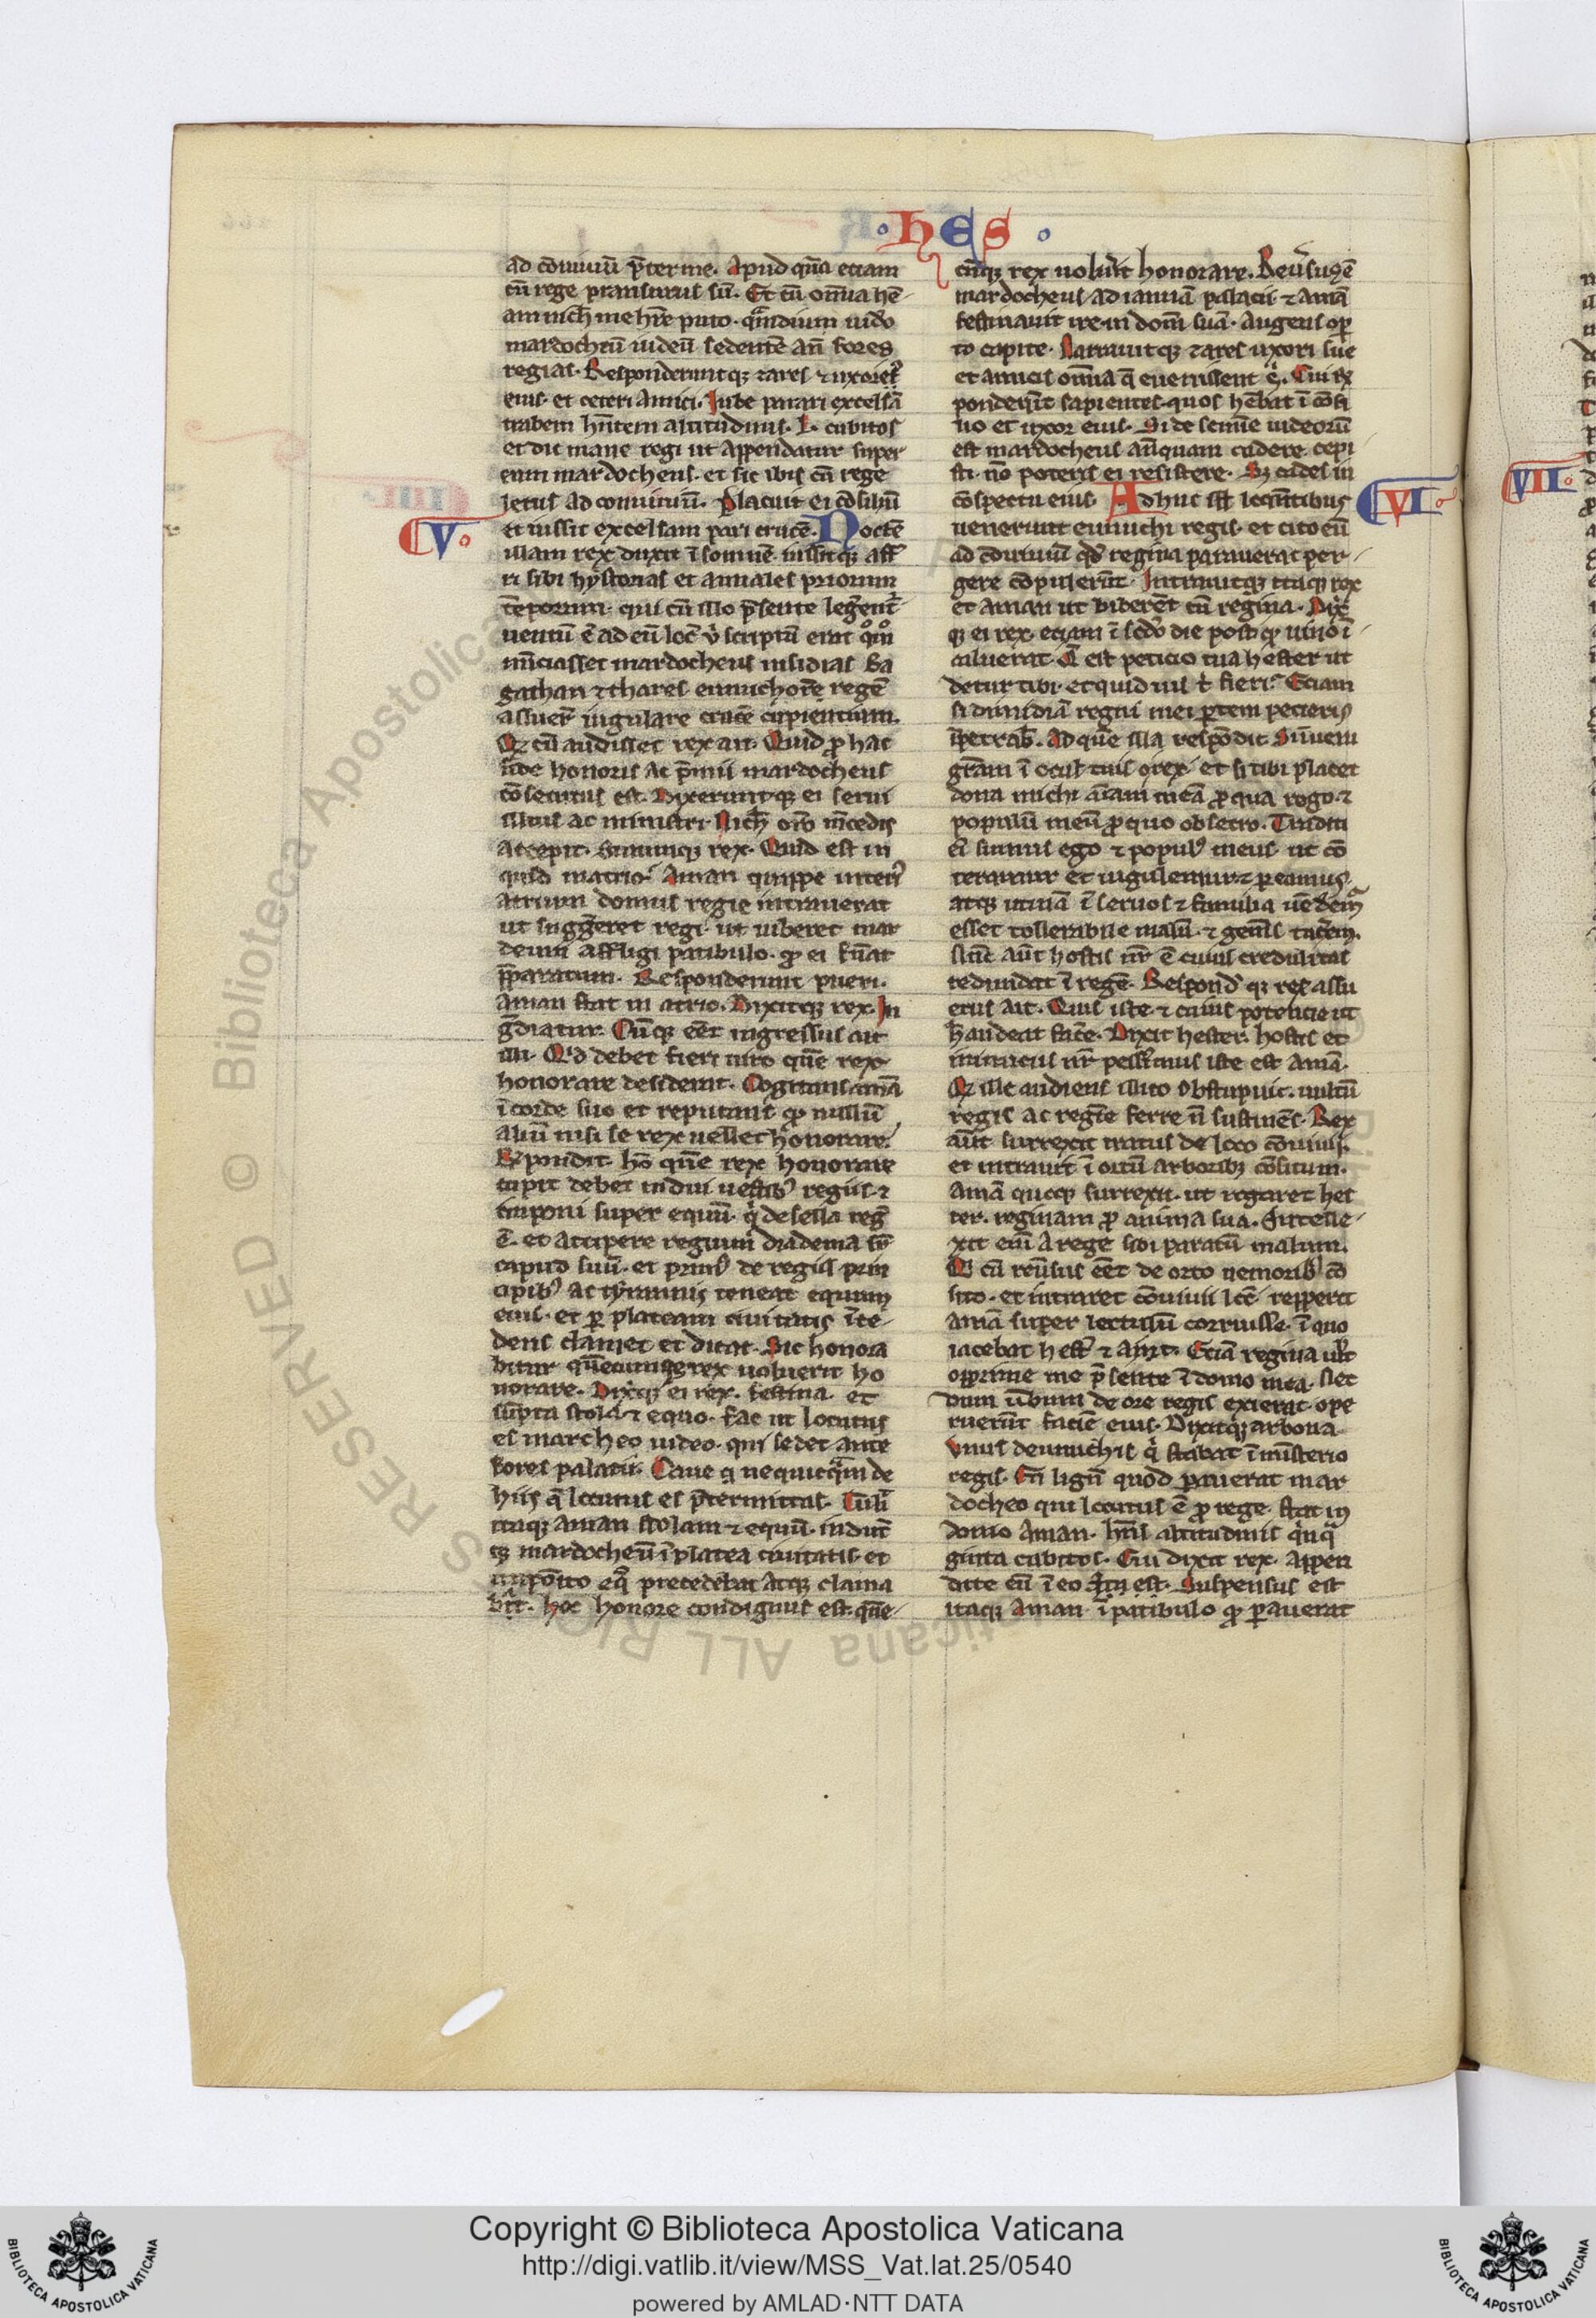 · hES ·
ad cōuiuiū p̄ter me. Apud quā etiam
cū rege pransurus sū. Et cū om̄ia hē
am nich̄ me hr̄e puto. quādium uidō
mardocheū iudeū sedentē an̄ fores
regias. Responderuntqꝫ zares ⁊ uxor et̉
eius et ceteri amici. Iube parari excelsā
trabem hn̄tem altitudinis. L. cubitos
et dic mane regi ut appendatur super
eum mardocheus. et sic ibis cū rege
letus ad conuiuiū. Placuit ei cōsiliū
V.
et iussit excelsam pari crucē. Noctē
illam rex duxit ī somnē. iussitqꝫ aff̄
ri sibi hystorias et annales priorum
tēporum. qui cū illo p̄sente leger̄ent
uentū ē ad eū locū ubi scriptū erat qͦmͦ
nūciasset mardocheus insidias ba
gathan ⁊ thares eunuchorē regē
assuer̄ iugulare cupientium.
Qꝫ cū audisset rex ait. Quid ꝓ hac
fide honoris ac p̄mii mardocheus
cōsecutus est. Dixeruntqꝫ ei serui
illius ac ministri. Nich̄ oīo m̄cedis
accepit. Statimqꝫ rex. Quid est in
quid in atrio. Aman quippe interiꝰ
atrium domus regie intrauerat
ut suggereret regi. ut iuberet mar
deum affligi patibulo. qꝫ ei fūat
p̄paratum. Responderunt pueri.
Aman stat in atrio. Dixitqꝫ rex. In
gr̄diatur. Cūqꝫ eēt ingressus ait
illi. Qͥd debet fieri uiro quē rex
honorare desiderat. Cogitans amā
ī corde suo et reputans qꝫ nullū
aliū nisi se rex uellet honorare.
Rꝫpondit. hō quē rex honorare
cupit debet indui uestibꝰ regiis ⁊
imponi super equū qͥ de sella regꝭ
ē. et accipere regium diadema sr̄
caput suū. et primꝰ de regiis prin
cipibꝰ ac tyrannis teneat equum
eius. et ꝑ plateam ciuitatis īce
dens clamet et dicat. Sic honora
bitur quēcumqꝫ rex uoluerit ho
norare. Dixitqꝫ ei rex. festina et
sūpta stola ⁊ equo. fac ut locutus
es marcheo iudeo. qui sedet ante
fores palatii. Caue ꝗ nequicqͣm de
hiis q̄ locutus es p̄termittas. Tulit
itaqꝫ aman stolam ⁊ equū. induit
qꝫ mardocheū ī platea ciuitatis et
inposito eqͦ precedebat atqꝫ clama
bat. hoc honore condignus est. quē
cūqꝫ rex uolūit honorare. Reuersusqꝫ ē
mardocheus ad ianuā palacii ⁊ amā
festinauit ire in domū suā. lugens op
to capite. Narrauitqꝫ zares uxori sue
et amicis omīa q̄ euenissent ei. Cui rꝫ
ponderūt sapientes quos hēbat ī cōsi
lio et uxor eius. Si de semīe iudeorū
est mardocheus an̄quam cadere cepi
sti. nō poteris ei resistere. Sꝫ cades in
cōspectu eius. Adhuc illis loquētibus
VI.
uenerunt eunuchi regis. et cito eū
ad cōuiuiū qd̄ regina parauerat per
gere cōpulerūt. Intrauitqꝫ itaqꝫ rex
et aman ut biberēt cū regina. Dixͭ
qꝫ ei rex etiam ī scd̄o die postqꝫ uino ī
caluerat. Q̄ est peticio tua hester ut
detur tibi. et quid uis t̉ fieri. Etiam
si dimidiā regni mei ꝑtem pecieris
īpetrab̄. Ad quē illa respōdit. Si īueni
grām ī oculis tuis o rex. et si tibi placet
dona michi aīam meā ꝓ qua rogo. ⁊
populū meū ꝓ quo obsecro. Traditi
eī sumus ego ⁊ populꝰ meus. ut cō
teramur et iugulemur ⁊ ꝑeamus.
atqꝫ utinā ī seruos ⁊ famulas uēdemͣ
esset tollerabile malū. ⁊ gemēs tacerem.
Nūc aūt hostis nr̄ ē cuius crudelitas
redundat ī regē. Respondꝰ qꝫ rex assu
erus ait. Quis iste ⁊ cuius potencie ut
h̄ audeat facē. Dixit hester. hostis et
inimicus nr̄ pessimus iste est amā.
Qꝫ ille audiens ilico obstupuit. uultū
regis ac regīe ferre n̄ sustinēs. Rex
aūt surrexit iratus de loco cōuiuii
et intrauit ī ortū arboribꝫ cōsitum.
Amā quoqꝫ surrexit. ut rogaret hes
ter. reginam ꝓ anima sua. Intelle
xit enī a rege sibi paratū malum.
Q cū reūsus eēt de orto nemoribꝰ cō
sito. et intraret cōuiuii locū. repperit
amā super lectulū corruisse. ī quo
iacebat hest̉ ⁊ ayt. Etiā regina uult
opprime me p̄sente ī domo mea. Nec
dum ūbum de ore regis exierat. ope
ruerūt faciē eius. Dixitqꝫ arbona
unus de eunuchis qͥ stabat ī mīsterio
regis. En lignū quod ꝑauerat mar
docheo qui locutus ē ꝓ rege. stat in
domo Aman. hn̄s altitudinis qͥnqͣ
ginta cubitos. Cui dixit rex. Appen
dite eū ī eo. Suspensus est
itaqꝫ Aman ī patibulo qꝫ ꝑauerat
VII.
© Biblioteca Apostolica Vaticana ALL RIGHTS RESERVED
Copyright © Biblioteca Apostolica Vaticana
http://digi.vatlib.it/view/MSS_Vat.lat.25/0540
powered by AMLAD·NTT DATA
BIBLIOTECA APOSTOLICA VATICANA
BIBLIOTECA APOSTOLICA VATICANA